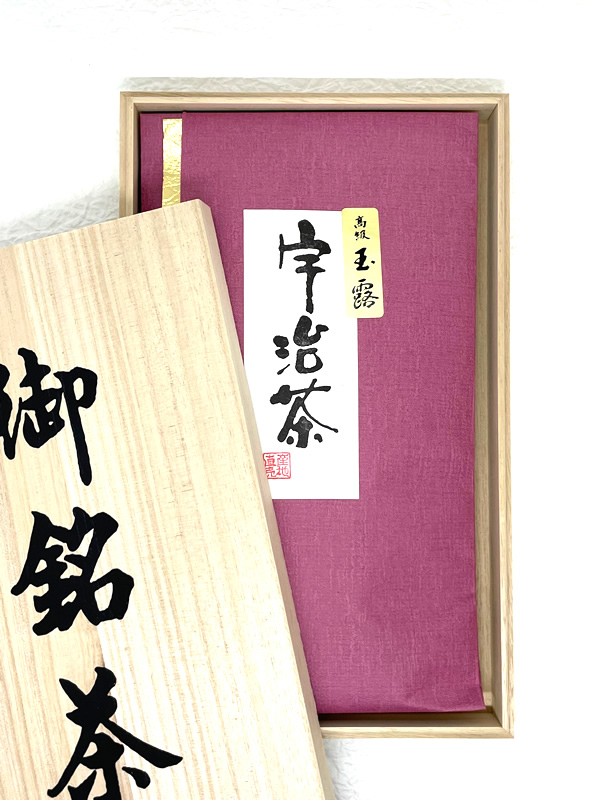 高級 玉露
宇治茶
産地
直売
御銘茶